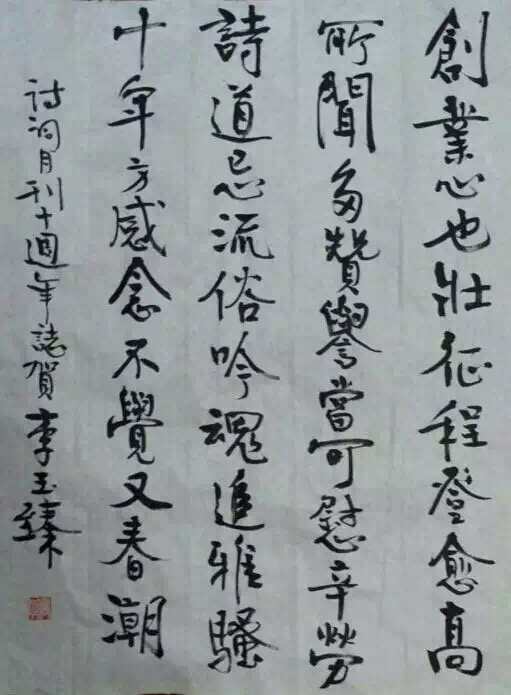 創業心也壯征程登愈高
所聞多贊譽當可慰辛勞
詩道忌流俗吟魂追雅騷
十年方感念不覺又春潮
詩詞月刊十週年誌賀李玉臻